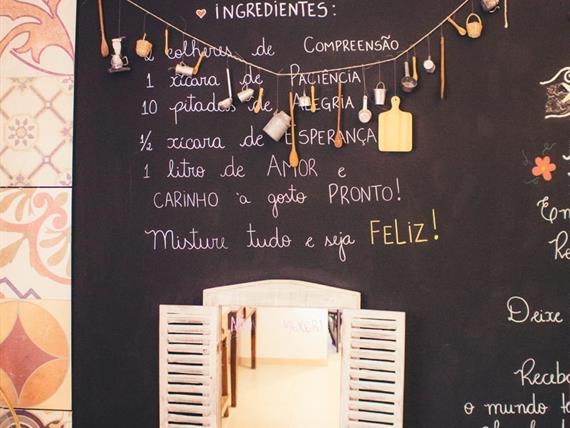 INGREDIENTES:
2 colheres de COMPREENSÃO
1 xícara de PACIÊNCIA
10 pitadas de ALEGRIA
½ xícara de ESPERANÇA
1 litro de AMOR e
CARINHO a gosto PRONTO!
Misture tudo e seja FELIZ!
Em
Re
Deixe
Receba
o mundo te